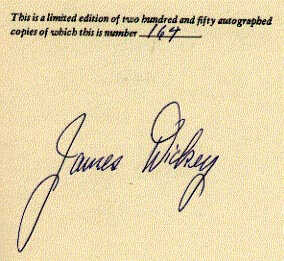 This is a limited edition of two hundred and fifty autographed
copies of which this is number 164
James Dickey